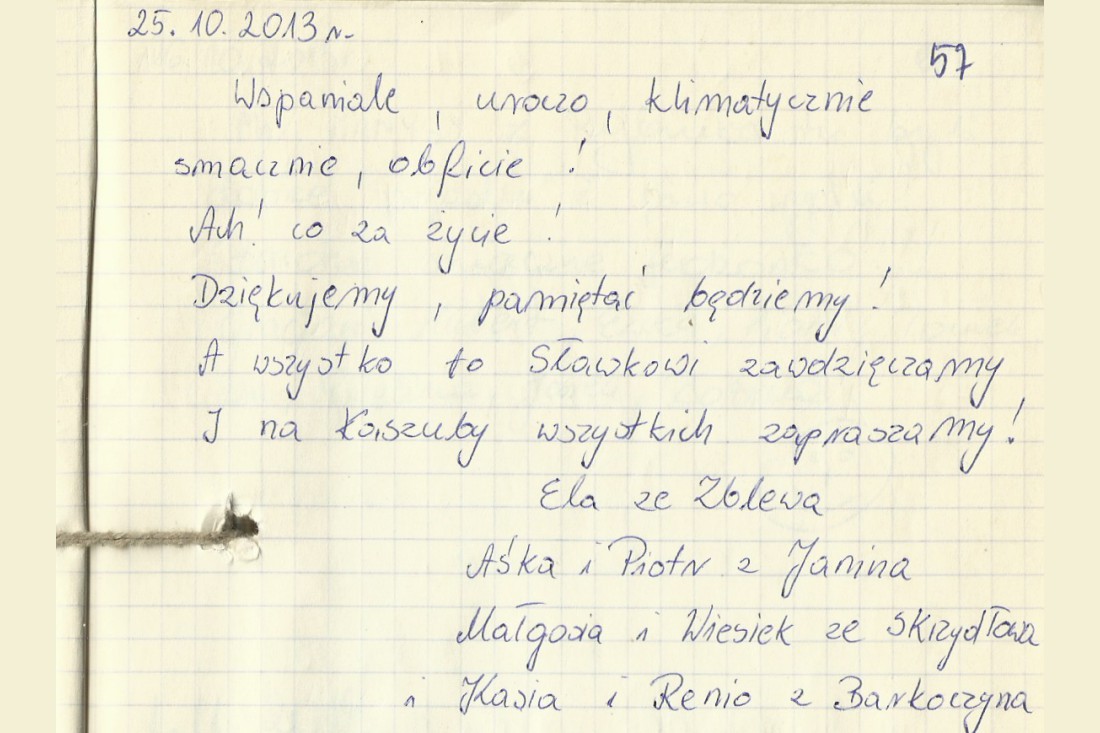 25.10.2013 r.
57
Wspaniale, uroczo, klimatycznie
smacznie, obficie!
Ach! co za życie!
Dziękujemy, pamiętać będziemy!
A wszystko to Sławkowi zawdzięczamy
I na Kaszuby wszystkich zapraszamy!
Ela ze Zblewa
Aśka i Piotr z Janina
Małgosia i Wiesiek ze Skrzydłowa
i Kasia i Renio z Barkoczyna